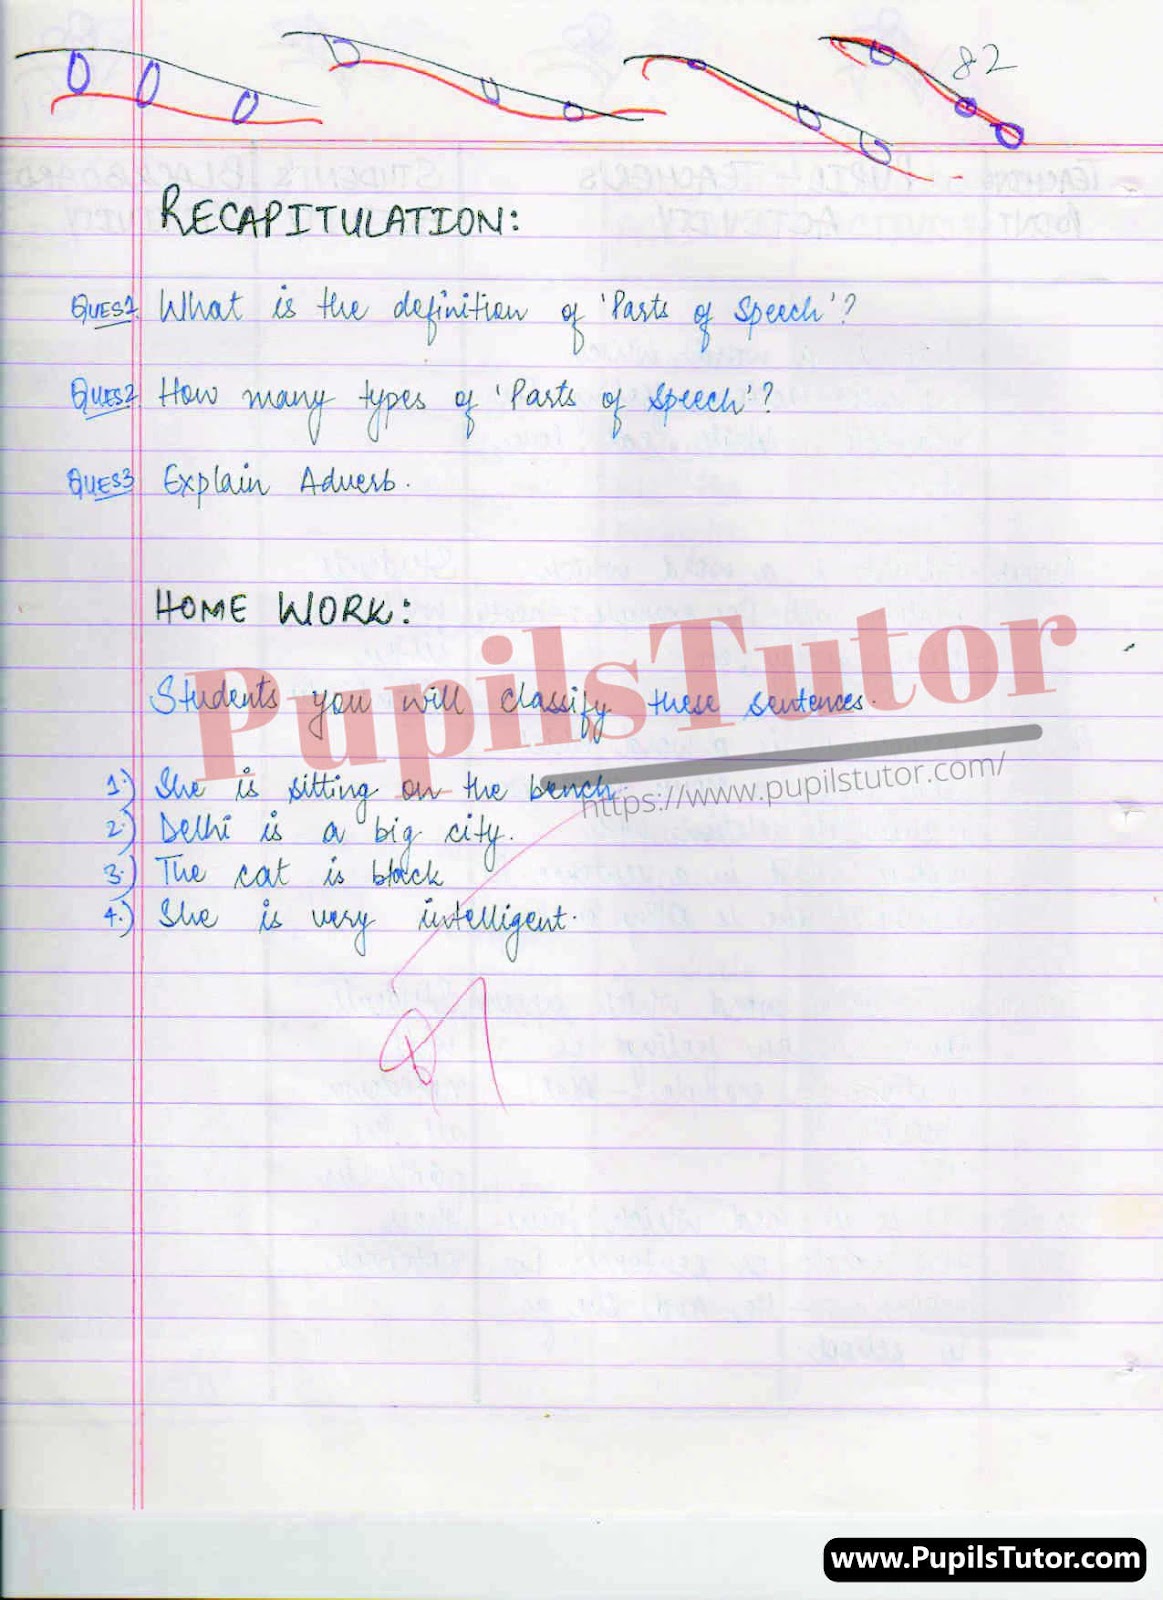 82
RECAPITULATION:
QUES1 What is the definition of 'Parts of Speech'?
QUES2 How many types of 'Parts of Speech'?
QUES3 Explain Adverb.
HOME WORK:
PupilsTutor
Students you will classify these sentences.
https://www.pupilstutor.com/
1.) She is sitting on the bench.
2.) Delhi is a big city.
3.) The cat is black
4.) She is very intelligent.
www.PupilsTutor.com